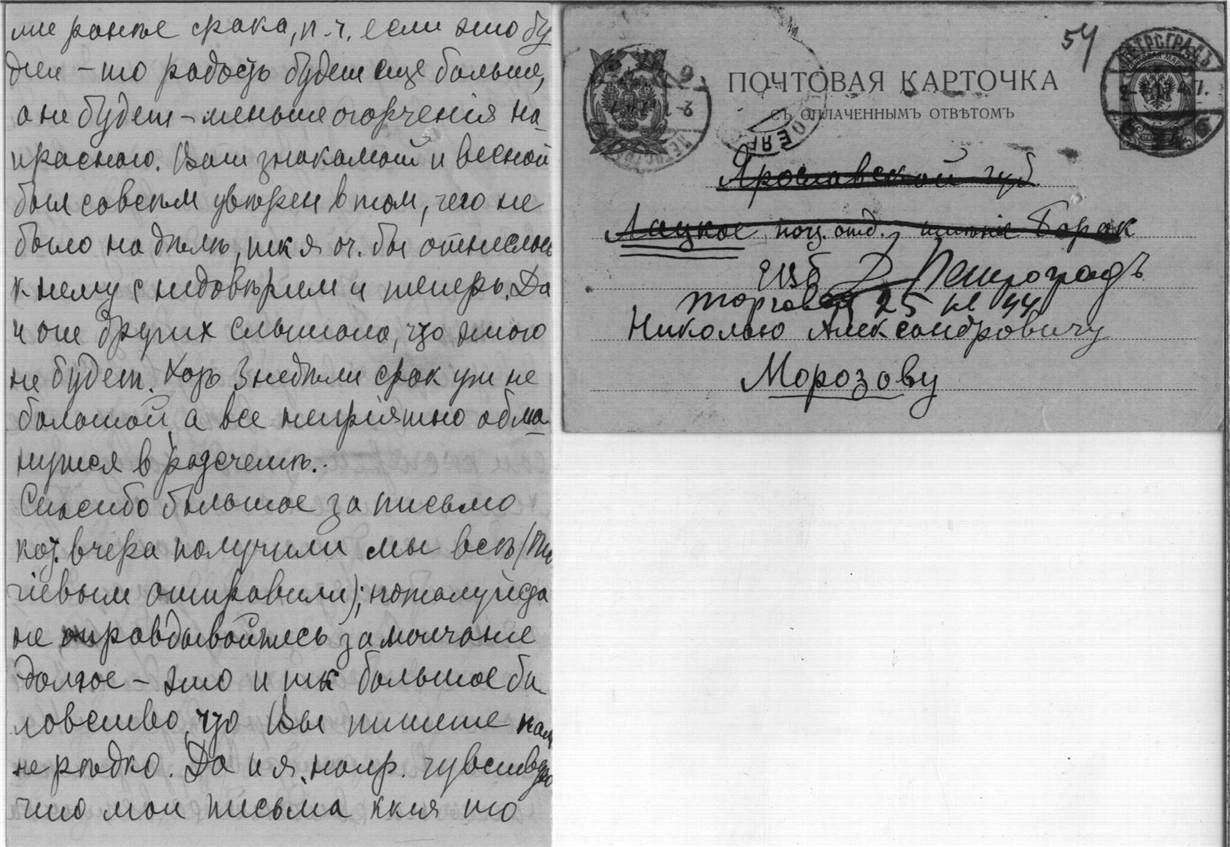 мне раньше срока, п.ч. если это бу
дет – то радость будет еще больше,
а не будет – меньше огорчения на
прасного. Ваш знакомый и весной
был совсем уверен в том, чего не
было на дѣлѣ, тк я оч. бы отнеслась
к нему с недовѣрием и теперь. Да
и от других слышала, что этого
не будет. Хоть 3 недѣли срок уж не
большой, а все непріятно обма
нутся в разсчетѣ..
Спасибо большое за письмо
кот. вчера получили мы всѣ
отправили); пожалуйста
не оправдывайтесь за молчание
долгое – это и тк большое ба
ловство, что Вы пишете нам
нерѣдко. Да и я, напр. чувствую
что мои письма ккія то
54
ПОЧТОВАЯ КАРТОЧКА
СЪ ОПЛАЧЕННЫМЪ ОТВѢТОМЪ
ПЕТРОГРАДЪ
Ярославской губ
Лацкое поч. отд. имѣніе Борок
Петроградъ
Торговая 25 кв
Николаю Александровичу
Морозову